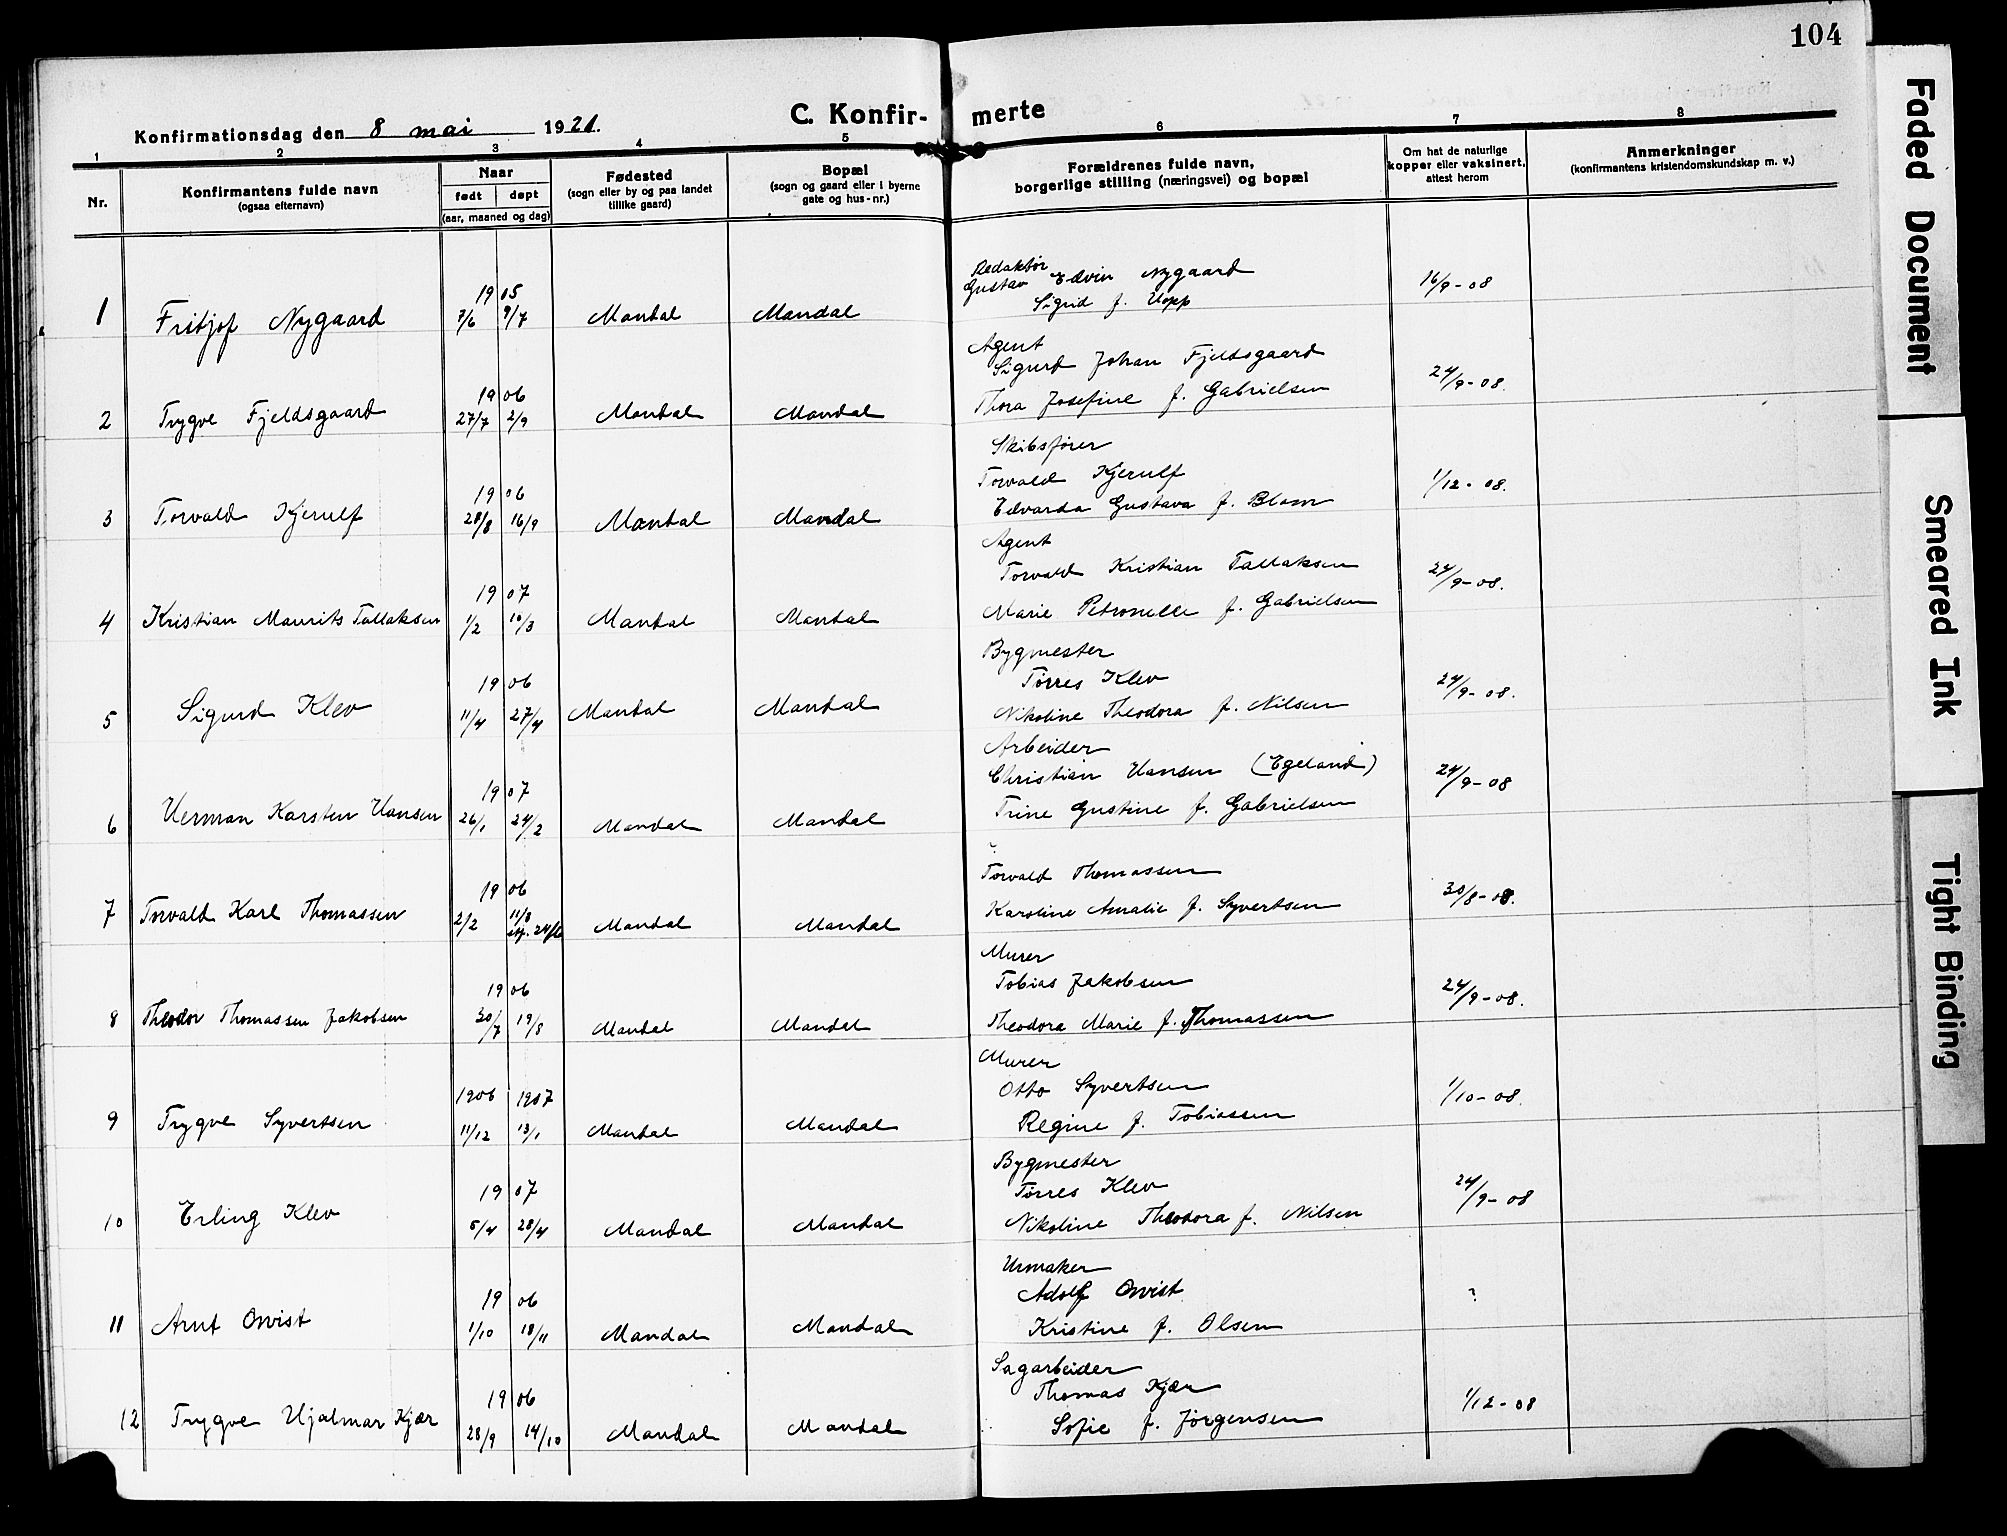 104
C. Konfirmerte
Konfirmationsdag den 8 mai 1921.
1 2 3 4 5 6 7 8
Nr.
Konfirmantens fulde navn
(ogsaa efternavn)
Naar
født døpt
(aar, maaned og dag)
Fødested
(sogn eller by og paa landet
tillike gaard)
Bopæl
(sogn og gaard eller i byerne
gate og hus-nr.)
Forældrenes fulde navn,
borgerlige stilling (næringsvei) og bopæl
Om hat de naturlige
kopper eller vaksinert,
attest herom
Anmerkninger
(konfirmantens kristendomskundskap m. v.)
Redaktør
Gustav Edvin Nygaard
1905
Sigrid f. Hopp
1 Fritjof Nygaard 7/6 9/7 Mandal Mandal 16/9-08
Agent
Sigurd Johan Fjeldsgaard
1906
Thora Josefine f. Gabrielsen
2 Trygve Fjeldsgaard 27/7 2/9 Mandal Mandal 24/9-08.
Skibsfører
Torvald Kjerulf
1906
Edvarda Gustava f. Blom
3 Torvald Kjerulf 28/8 16/9 Mandal Mandal 1/12-08.
Agent
Torvald Kristian Tallaksen
1907
Marie Petronelle f. Gabrielsen
4 Kristian Maurits Tallaksen 1/2 10/3 Mandal Mandal 24/9-08.
Bygmester
Tørres Klev
1906
Nikoline Theodora f. Nilsen
5 Sigurd Klev 11/4 27/4 Mandal Mandal 24/9-08.
Arbeider
Christian Hansen (Egeland)
1907
Trine Gustine f. Gabrielsen
6 Herman Karsten Hansen 26/1 24/2 Mandal Mandal 24/9-08
Torvald Thomassen
1906
Karoline Amalie f. Syvertsen
7 Torvald Karl Thomassen 2/2 11/3 Mandal Mandal 30/8-08.
Murer
Tobias Jakobsen
1906
Theodora Marie f. Thomassen
8 Theodor Thomassen Jakobsen 30/7 19/8 Mandal Mandal 24/9-08.
Murer
Otto Syvertsen
1906 1907
Regine f. Tobiassen
9 Trygve Syvertsen 11/12 13/1 Mandal Mandal 1/10-08.
Bygmester
Tørres Klev
1907
Nikoline Theodora f. Nilsen
10 Erling Klev 5/4 28/4 Mandal Mandal 24/9-08
Urmaker
Adolf Qvist
1906
Kristine f. Olsen
11 Arnt Qvist 1/10 18/11 Mandal Mandal ?
Sagarbeider
Thomas Kjær
1906
Sofie f. Jörgensen
12 Trygve Hjalmar Kjær 28/9 14/10 Mandal Mandal 1/12-08
Faded Document
Smeared Ink
Tight Binding